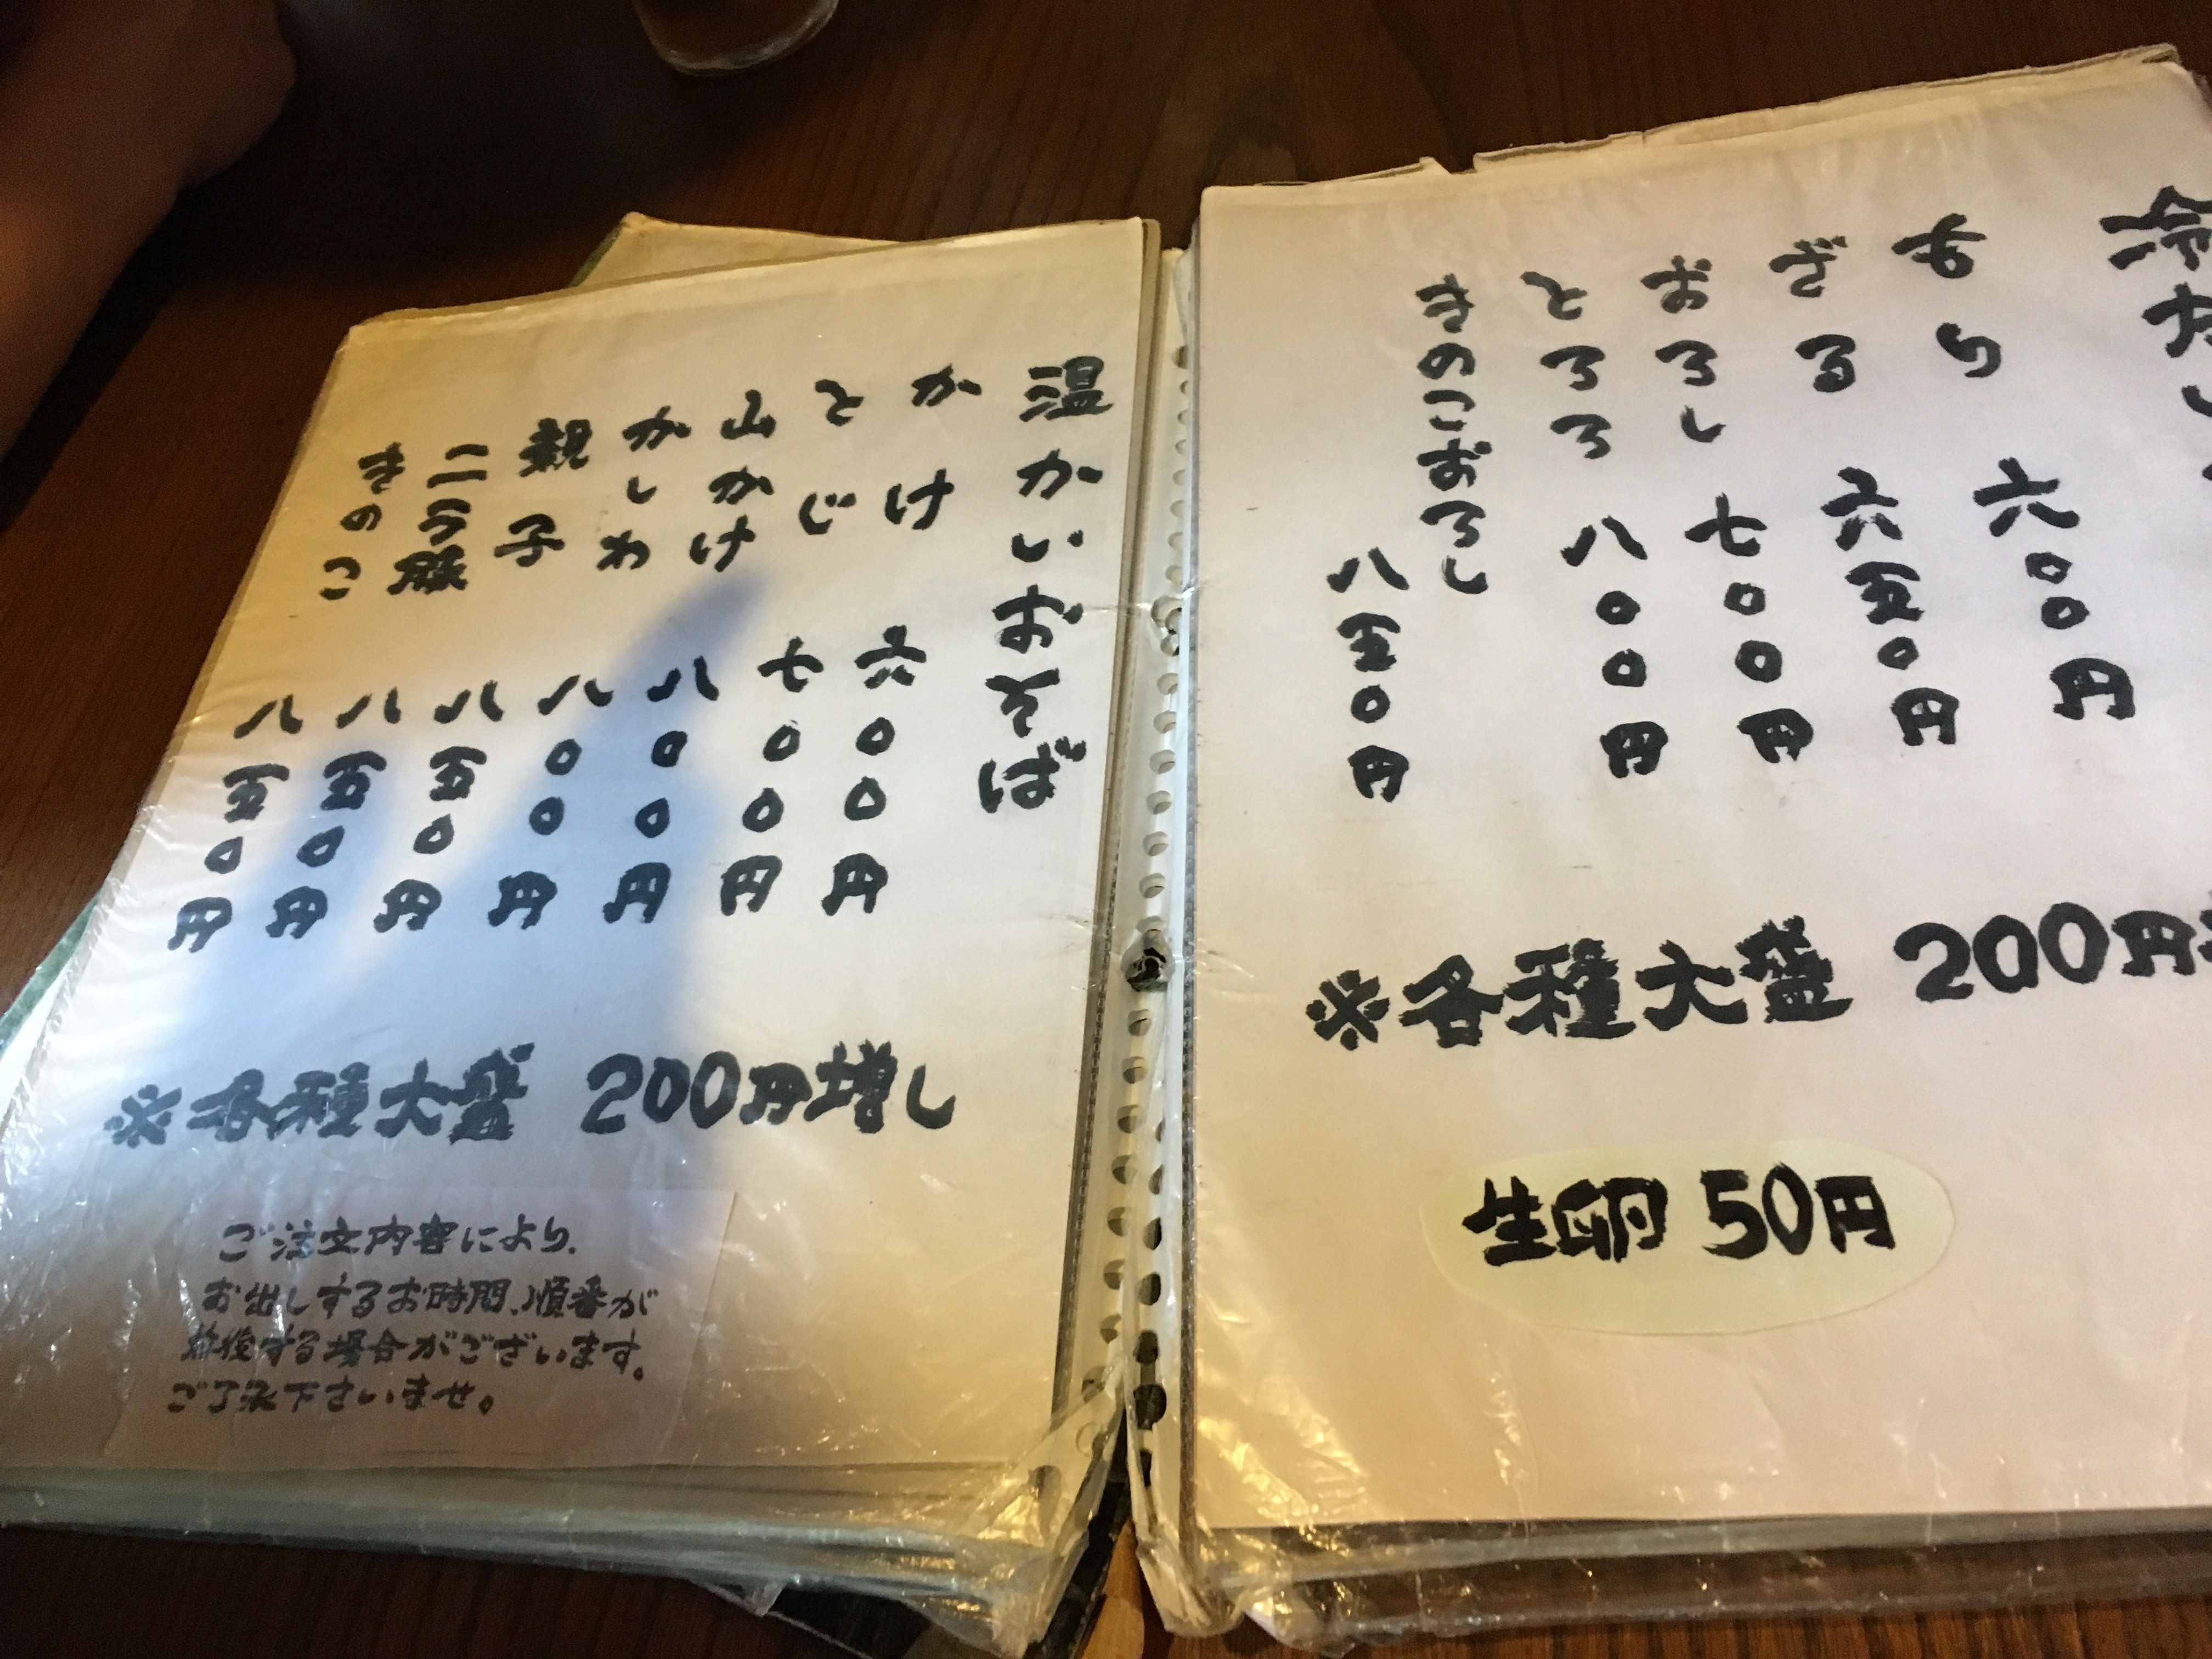 冷たい
もり 六〇〇円
ざる 六五〇円
おろし 七〇〇円
とろろ 八〇〇円
きのこおろし 八五〇円
※各種大盛 200円
生卵 50円
温かいおそば
かけ 六〇〇円
とじ 七〇〇円
山かけ 八〇〇円
かしわ 八〇〇円
親子 八五〇円
ニラ豚 八五〇円
きのこ 八五〇円
※各種大盛 200円増し
ご注文内容により、
お出しするお時間、順番が
前後する場合がございます。
ご了承下さいませ。